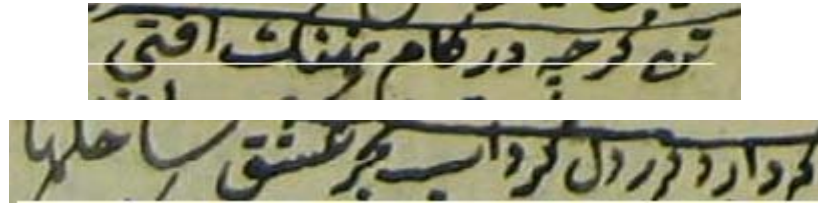 تو گرچه در کام نهنگ افتی
که دارد در دل گرداب بحر عشق ساحلها